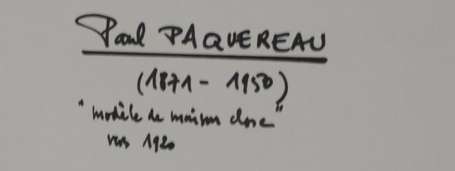 Paul PAQUEREAU
(1871 - 1950)
"modèle de maison close"
vers 1920